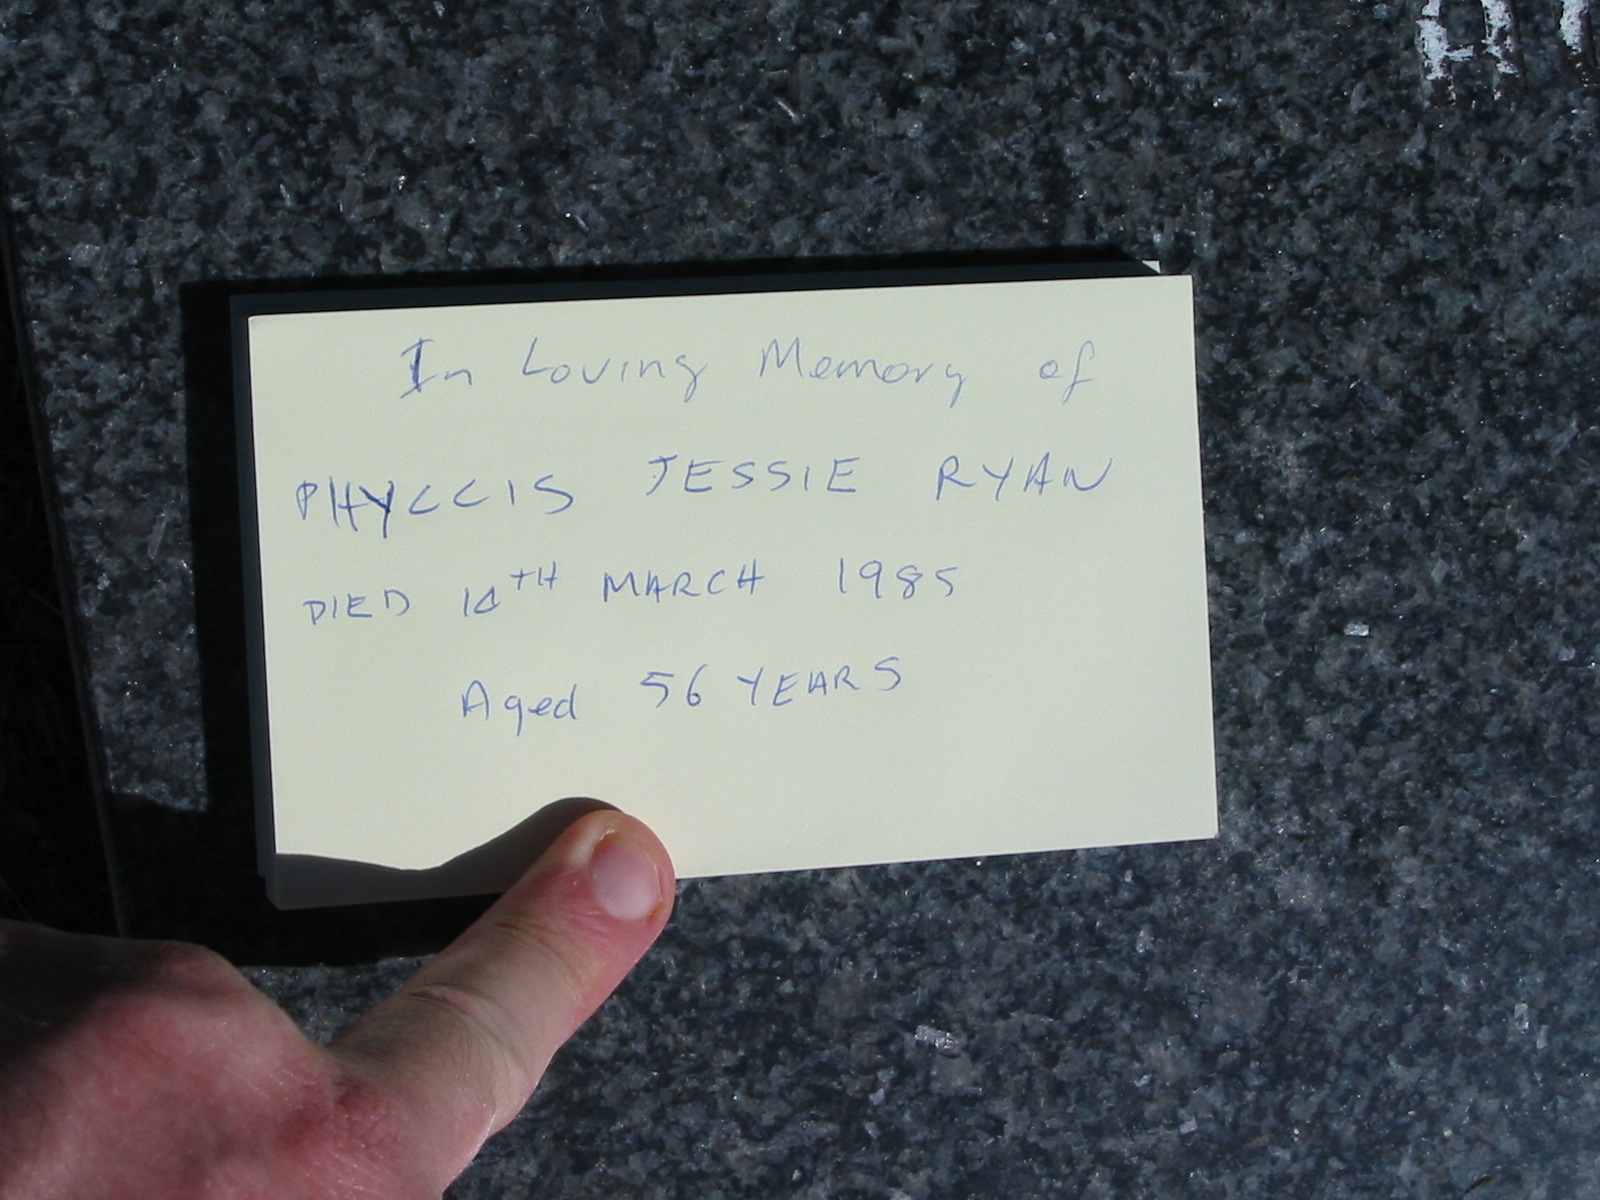 In Loving Memory of
PHYLLIS JESSIE RYAN
DIED 14TH MARCH 1985
Aged 56 YEARS